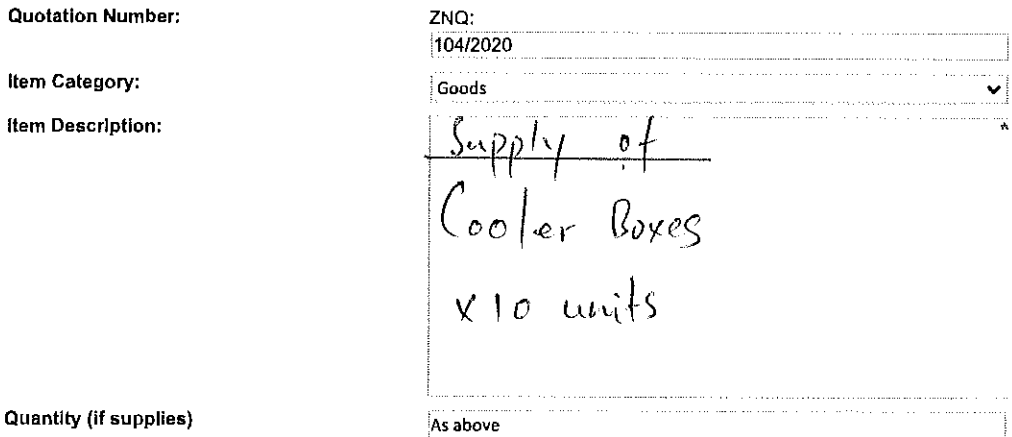 Quotation Number:
ZNQ:
104/2020
Item Category:
Goods
Item Description:
Supply of
Cooler Boxes
x 10 units
Quantity (if supplies)
As above